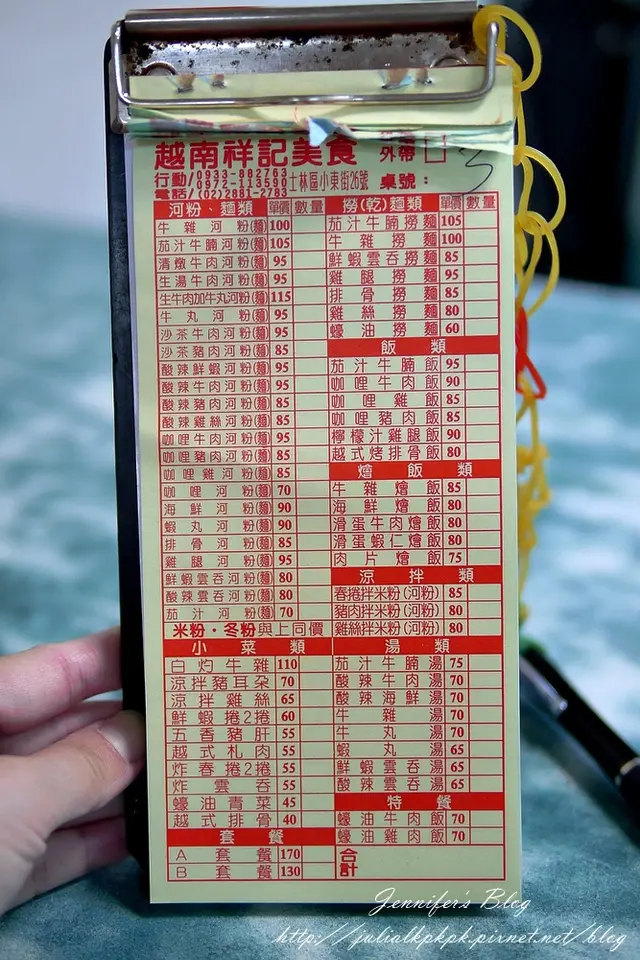 越南祥記美食
外帶 □
行動/0933-882763
0972-113590
電話/(02)2881-2783
士林區小東街26號 桌號： 3
河粉、麵類 單價 數量
牛雜河粉(麵) 100
茄汁牛腩河粉(麵) 105
清燉牛肉河粉(麵) 95
生湯牛肉河粉(麵) 95
生牛肉加牛丸河粉(麵) 115
牛丸河粉(麵) 95
沙茶牛肉河粉(麵) 95
沙茶豬肉河粉(麵) 85
酸辣鮮蝦河粉(麵) 95
酸辣牛肉河粉(麵) 95
酸辣豬肉河粉(麵) 85
酸辣雞絲河粉(麵) 85
咖哩牛肉河粉(麵) 95
咖哩豬肉河粉(麵) 85
咖哩雞河粉(麵) 85
咖哩河粉(麵) 70
海鮮河粉(麵) 90
蝦丸河粉(麵) 90
排骨河粉(麵) 85
雞腿河粉(麵) 95
鮮蝦雲吞河粉(麵) 80
酸辣雲吞河粉(麵) 80
茄汁河粉(麵) 70
米粉・冬粉與上同價
小菜類
白灼牛雜 110
涼拌豬耳朵 70
涼拌雞絲 65
鮮蝦捲2捲 60
五香豬肝 55
越式札肉 55
炸春捲2捲 55
炸雲吞 55
蠔油青菜 45
越式排骨 40
套餐
A套餐 170
B套餐 130
撈(乾)麵類 單價 數量
茄汁牛腩撈麵 105
牛雜撈麵 100
鮮蝦雲吞撈麵 85
雞腿撈麵 95
排骨撈麵 85
雞絲撈麵 80
蠔油撈麵 60
飯類
茄汁牛腩飯 95
咖哩牛肉飯 90
咖哩雞飯 85
咖哩豬肉飯 85
檸檬汁雞腿飯 90
越式烤排骨飯 80
燴飯類
牛雜燴飯 85
海鮮燴飯 80
滑蛋牛肉燴飯 80
滑蛋蝦仁燴飯 80
肉片燴飯 75
涼拌類
春捲拌米粉(河粉) 85
豬肉拌米粉(河粉) 80
雞絲拌米粉(河粉) 80
湯類
茄汁牛腩湯 75
酸辣牛肉湯 70
酸辣海鮮湯 70
牛雜湯 70
牛丸湯 70
蝦丸湯 65
鮮蝦雲吞湯 65
酸辣雲吞湯 65
特餐
蠔油牛肉飯 70
蠔油雞肉飯 70
合計
Jennifer's Blog
http://julialkpkpk.pixnet.net/blog